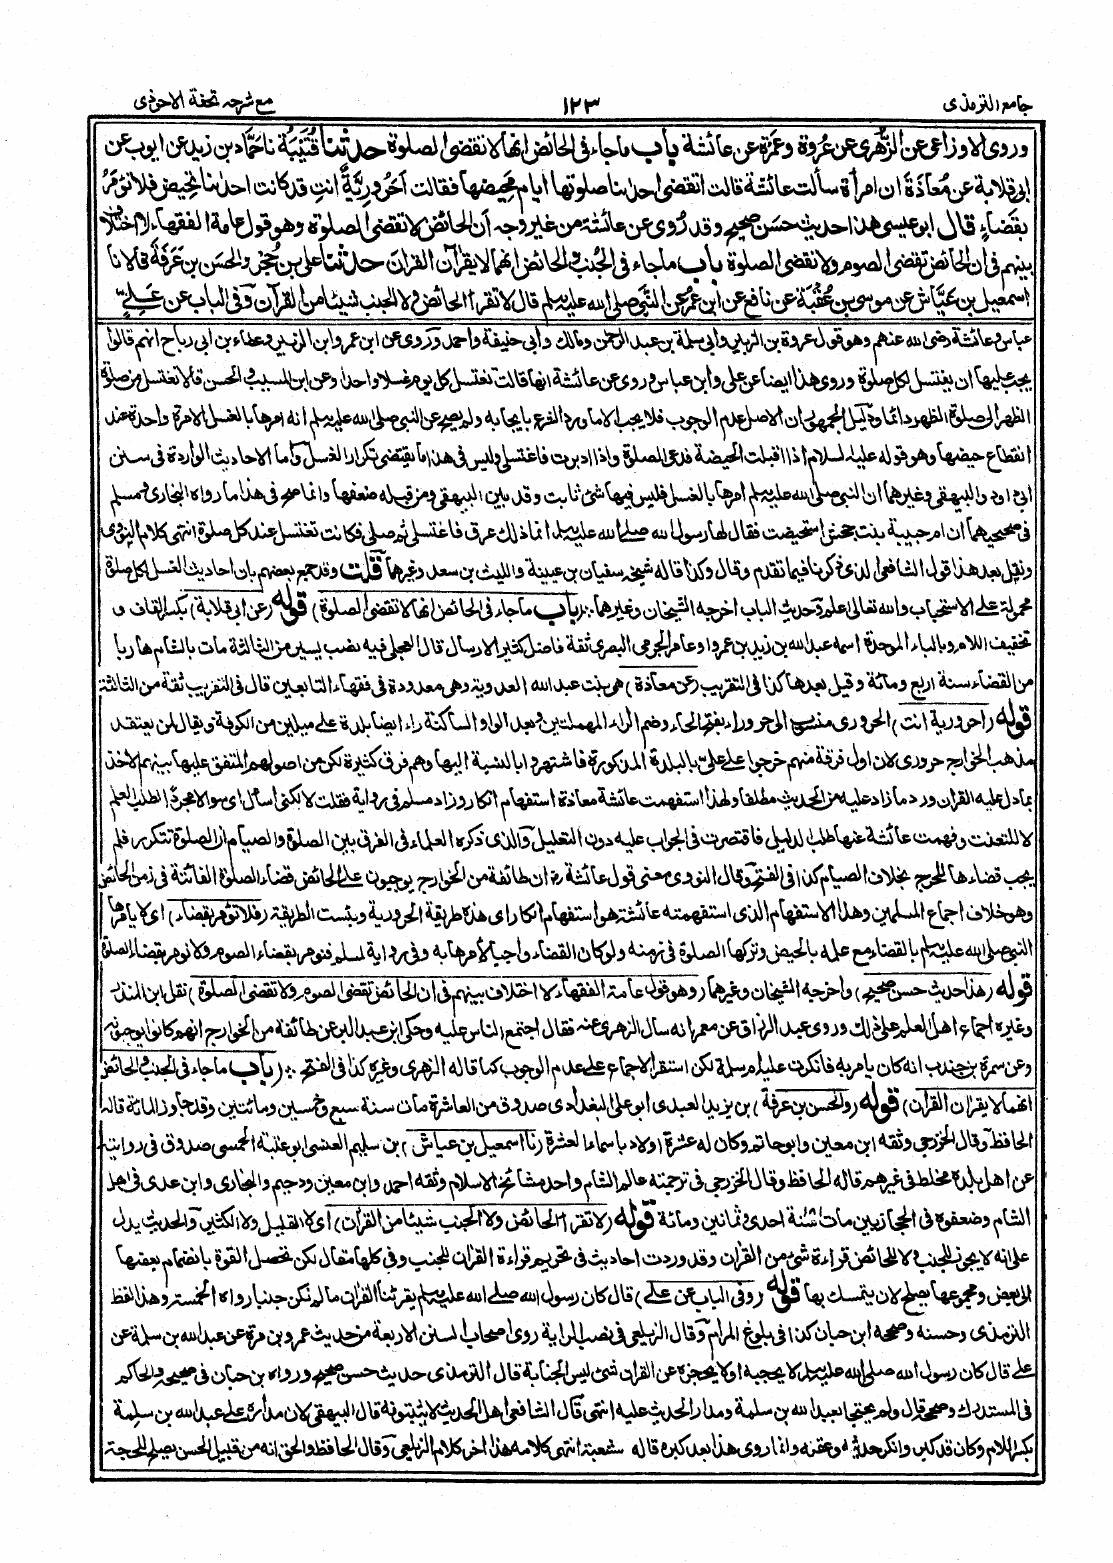 جامع الترمذى
١٢٣
مع شرحه تحفة الاحوذى
وروى الاوزاعى عن الزهرى عن عروة وعمرة عن عائشة باب ماجاء فى الحائض انها لا تقضى الصلوة حدثنا قتيبة نا حماد بن زيد عن ايوب عن
ابى قلابة عن معاذة ان امرأة سألت عائشة قالت اتقضى احدانا صلوتها ايام محيضها فقالت أحرورية انت قد كانت احدانا تحيض فلا تؤمر
بقضاء قال ابو عيسى هذا حديث حسن صحيح وقد روى عن عائشة من غير وجه أن الحائض لا تقضى الصلوة وهو قول عامة الفقهاء لا اختلاف
بينهم فى ان الحائض تقضى الصوم ولا تقضى الصلوة باب ماجاء فى الجنب والحائض انهما لا يقرأن القران حدثنا على بن حجر والحسن بن عرفة قالا نا
اسمعيل بن عياش عن موسى بن عقبة عن نافع عن ابن عمر عن النبى صلى الله عليه وسلم قال لا تقرأ الحائض ولا الجنب شيئا من القرآن وفى الباب عن على
عباس وعائشة رضى الله عنهم وهو قول عروة بن الزبير وابى سلمة بن عبد الرحمن ومالك وأبى حنيفة واحمد وروى عن ابن عمر وابن الزبير وعطاء بن ابى رباح انهم قالوا
يجب عليها ان يغتسل لكل صلوة وروى هذا ايضا عن على وابن عباس وروى عن عائشة انها قالت تغتسل كل يوم غسلا واحدا وعن ابن المسيب والحسن قالا تغتسل من صلوة
الظهر الى صلوة الظهر دائما ودليل الجمهور ان الاصل عدم الوجوب فلا يجب الا ما ورد الشرع بايجابه ولم يصح عن النبى صلى الله عليه وسلم انه امرها بالغسل الا مرة واحدة عند
انقطاع حيضها وهو قوله عليه السلام اذا اقبلت الحيضة فدعى الصلوة واذا ادبرت فاغتسلى وليس فى هذا ما يقتضى تكرار الغسل وأما الاحاديث الواردة فى سنن
ابى داود والبيهقى وغيرهما ان النبى صلى الله عليه وسلم امرها بالغسل فليس فيها شئ ثابت وقد بين البيهقى ومن قبله ضعفها وانما صح فى هذا ما رواه البخارى ومسلم
فى صحيحيهما ان ام حبيبة بنت جحش استحيضت فقال لها رسول الله صلى الله عليه وسلم انما ذلك عرق فاغتسلى ثم صلى فكانت تغتسل عند كل صلوة انتهى كلام النووى
ونقل بعد هذا قول الشافعى الذى ذكرنا فيما تقدم وقال وكذا قاله شيخه سفيان بن عيينة والليث بن سعد وغيرهما قلت وقد جمع بعضهم بان احاديث الغسل لكل صلوة
محمولة على الاستحباب والله تعالى اعلم وحديث الباب اخرجه الشيخان وغيرهما (باب ماجاء فى الحائض انها لا تقضى الصلوة) قوله (عن ابى قلابة) بكسر القاف و
تخفيف اللام وبالباء الموحدة اسمه عبد الله بن زيد بن عمرو او عامر الجرمى البصرى ثقة فاضل كثير الارسال قال العجلى فيه نصب يسير من الثالثة مات بالشام هاربا
من القضاء سنة اربع ومائة وقيل بعدها كذا فى التقريب (عن معاذة) هى بنت عبد الله العدوية وهى معدودة فى فقهاء التابعين قال فى التقريب ثقة من الثالثة
قوله (احرورية انت) الحرورى منسوب الى حروراء بفتح الحاء وضم الراء المهملتين وبعد الواو الساكنة راء ايضا بلدة على ميلين من الكوفة ويقال لمن يعتقد
مذهب الخوارج حرورى لان اول فرقة منهم خرجوا على على بالبلدة المذكورة فاشتهروا بالنسبة اليها وهم فرق كثيرة لكن من اصولهم المتفق عليها بينهم الاخذ
بما دل عليه القران ورد ما زاد عليه من الحديث مطلقا ولهذا استفهمت عائشة معاذة استفهام انكار وزاد مسلم فى رواية فقلت لا ولكنى اسأل اى سوالا مجردا لطلب العلم
لا للتعنت وفهمت عائشة عنها طلب الدليل فاقتصرت فى الجواب عليه دون التعليل والذى ذكره العلماء فى الفرق بين الصلوة والصيام ان الصلوة تتكرر فلم
يجب قضاءها للحرج بخلاف الصيام كذا فى الفتح وقال النووى معنى قول عائشة رض ان طائفة من الخوارج يوجبون على الحائض قضاء الصلوة الفائتة فى زمن الحائض
وهو خلاف اجماع المسلمين وهذا الاستفهام الذى استفهمته عائشة هو استفهام انكار اى هذه طريقة الحرورية وبئست الطريقة (فلا تؤمر بقضاء) اى لا يأمرها
النبى صلى الله عليه وسلم بالقضاء مع علمه بالحيض وتركها الصلوة فى زمنه ولو كان القضاء واجبا لأمرها به وفى رواية لمسلم فنومر بقضاء الصوم ولا نومر بقضاء الصلوة
قوله (هذا حديث حسن صحيح) واخرجه الشيخان وغيرهما (وهو قول عامة الفقهاء لا اختلاف بينهم فى ان الحائض تقضى الصوم ولا تقضى الصلوة) نقل ابن المنذر
وغيره اجماع اهل العلم على ذلك وروى عبد الرزاق عن معمر انه سال الزهرى عنه فقال اجتمع الناس عليه وحكى ابن عبد البر عن طائفة من الخوارج انهم كانوا يوجبونه
وعن سمرة بن جندب انه كان يامر به فانكرت عليه ام سلمة لكن استقر الاجماع على عدم الوجوب كما قاله الزهرى وغيره كذا فى الفتح (باب ماجاء فى الجنب والحائض
انهما لا يقران القران) قوله (والحسن بن عرفة) بن يزيد العبدى ابو على البغدادى صدوق من العاشرة مات سنة سبع وخمسين ومائتين وقد جاوز المائة قاله
الحافظ وقال الخزرجى وثقه ابن معين وابو حاتم وكان له عشرة اولاد باسماء العشرة (نا اسمعيل بن عياش) بن سليم العنسى ابو عتبة الحمصى صدوق فى روايته
عن اهل بلده مخلط فى غيرهم قاله الحافظ وقال الخزرجى فى ترجمته عالم الشام واحد مشائخ الاسلام وثقه احمد وابن معين ودحيم والبخارى وابن عدى فى اهل
الشام وضعفوه فى الحجازيين مات سنة احدى وثمانين ومائة قوله (لا تقرأ الحائض ولا الجنب شيئا من القران) اى لا القليل ولا الكثير والحديث يدل
على انه لا يجوز للجنب ولا للحائض قراءة شئ من القران وقد وردت احاديث فى تحريم قراءة القران للجنب وفى كلها مقال لكن تحصل القوة بانضمام بعضها
الى بعض ومجموعها يصلح لان يتمسك بها قوله (وفى الباب عن على) قال كان رسول الله صلى الله عليه وسلم يقرئنا القران ما لم يكن جنبا رواه الخمسة وهذا لفظ
الترمذى وحسنه وصححه ابن حبان كذا فى بلوغ المرام وقال الزيلعى فى نصب الراية روى اصحاب السنن الاربعة من حديث عمرو بن مرة عن عبد الله بن سلمة عن
على قال كان رسول الله صلى الله عليه وسلم لا يحجبه او لا يحجزه عن القران شئ ليس الجنابة قال الترمذى حديث حسن صحيح ورواه بن حبان فى صحيحه والحاكم
فى المستدرك وصححه قال ولم يحتجا بعبد الله بن سلمة ومدار الحديث عليه انتهى قال الشافعى اهل الحديث لا يثبتونه قال البيهقى لان مداره على عبد الله بن سلمة
بكسر اللام وكان قد كبر وانكر حديثه وعقله وانما روى هذا بعد كبره قاله شعبة انتهى كلامه هذا اخر كلام الزيلعى وقال الحافظ والحق انه من قبيل الحسن يصلح للحجة